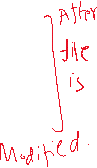 After
the
is
Modified.